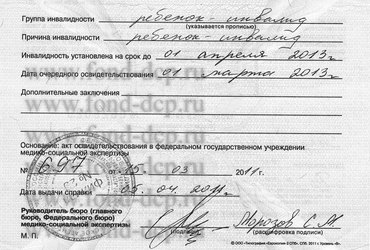 Группа инвалидности ребенок инвалид
(указывается прописью)
Причина инвалидности ребенок-инвалид
Инвалидность установлена на срок до 01 апреля 2013г.
Дата очередного освидетельствования 01 марта 2013г.
Дополнительные заключения
www.fond-dcp.ru
www.fond-dcp.ru
Основание: акт освидетельствования в федеральном государственном учреждении
медико-социальной экспертизы
№ 697 от 15. 03 2011г.
Дата выдачи справки 05.04.2011.
М.П.
Руководитель бюро (главного
бюро, Федерального бюро)
медико-социальной экспертизы
(подпись)
Морозов С.А.
(расшифровка подписи)